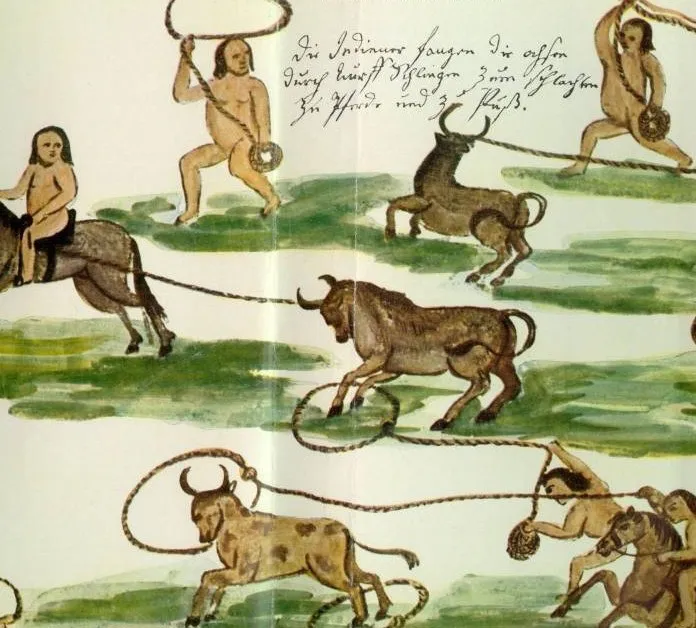 Die Indianer fangen die ochsen
durch Wurff Schlingen zum schlachten
zu Pferde und zu Fuß.